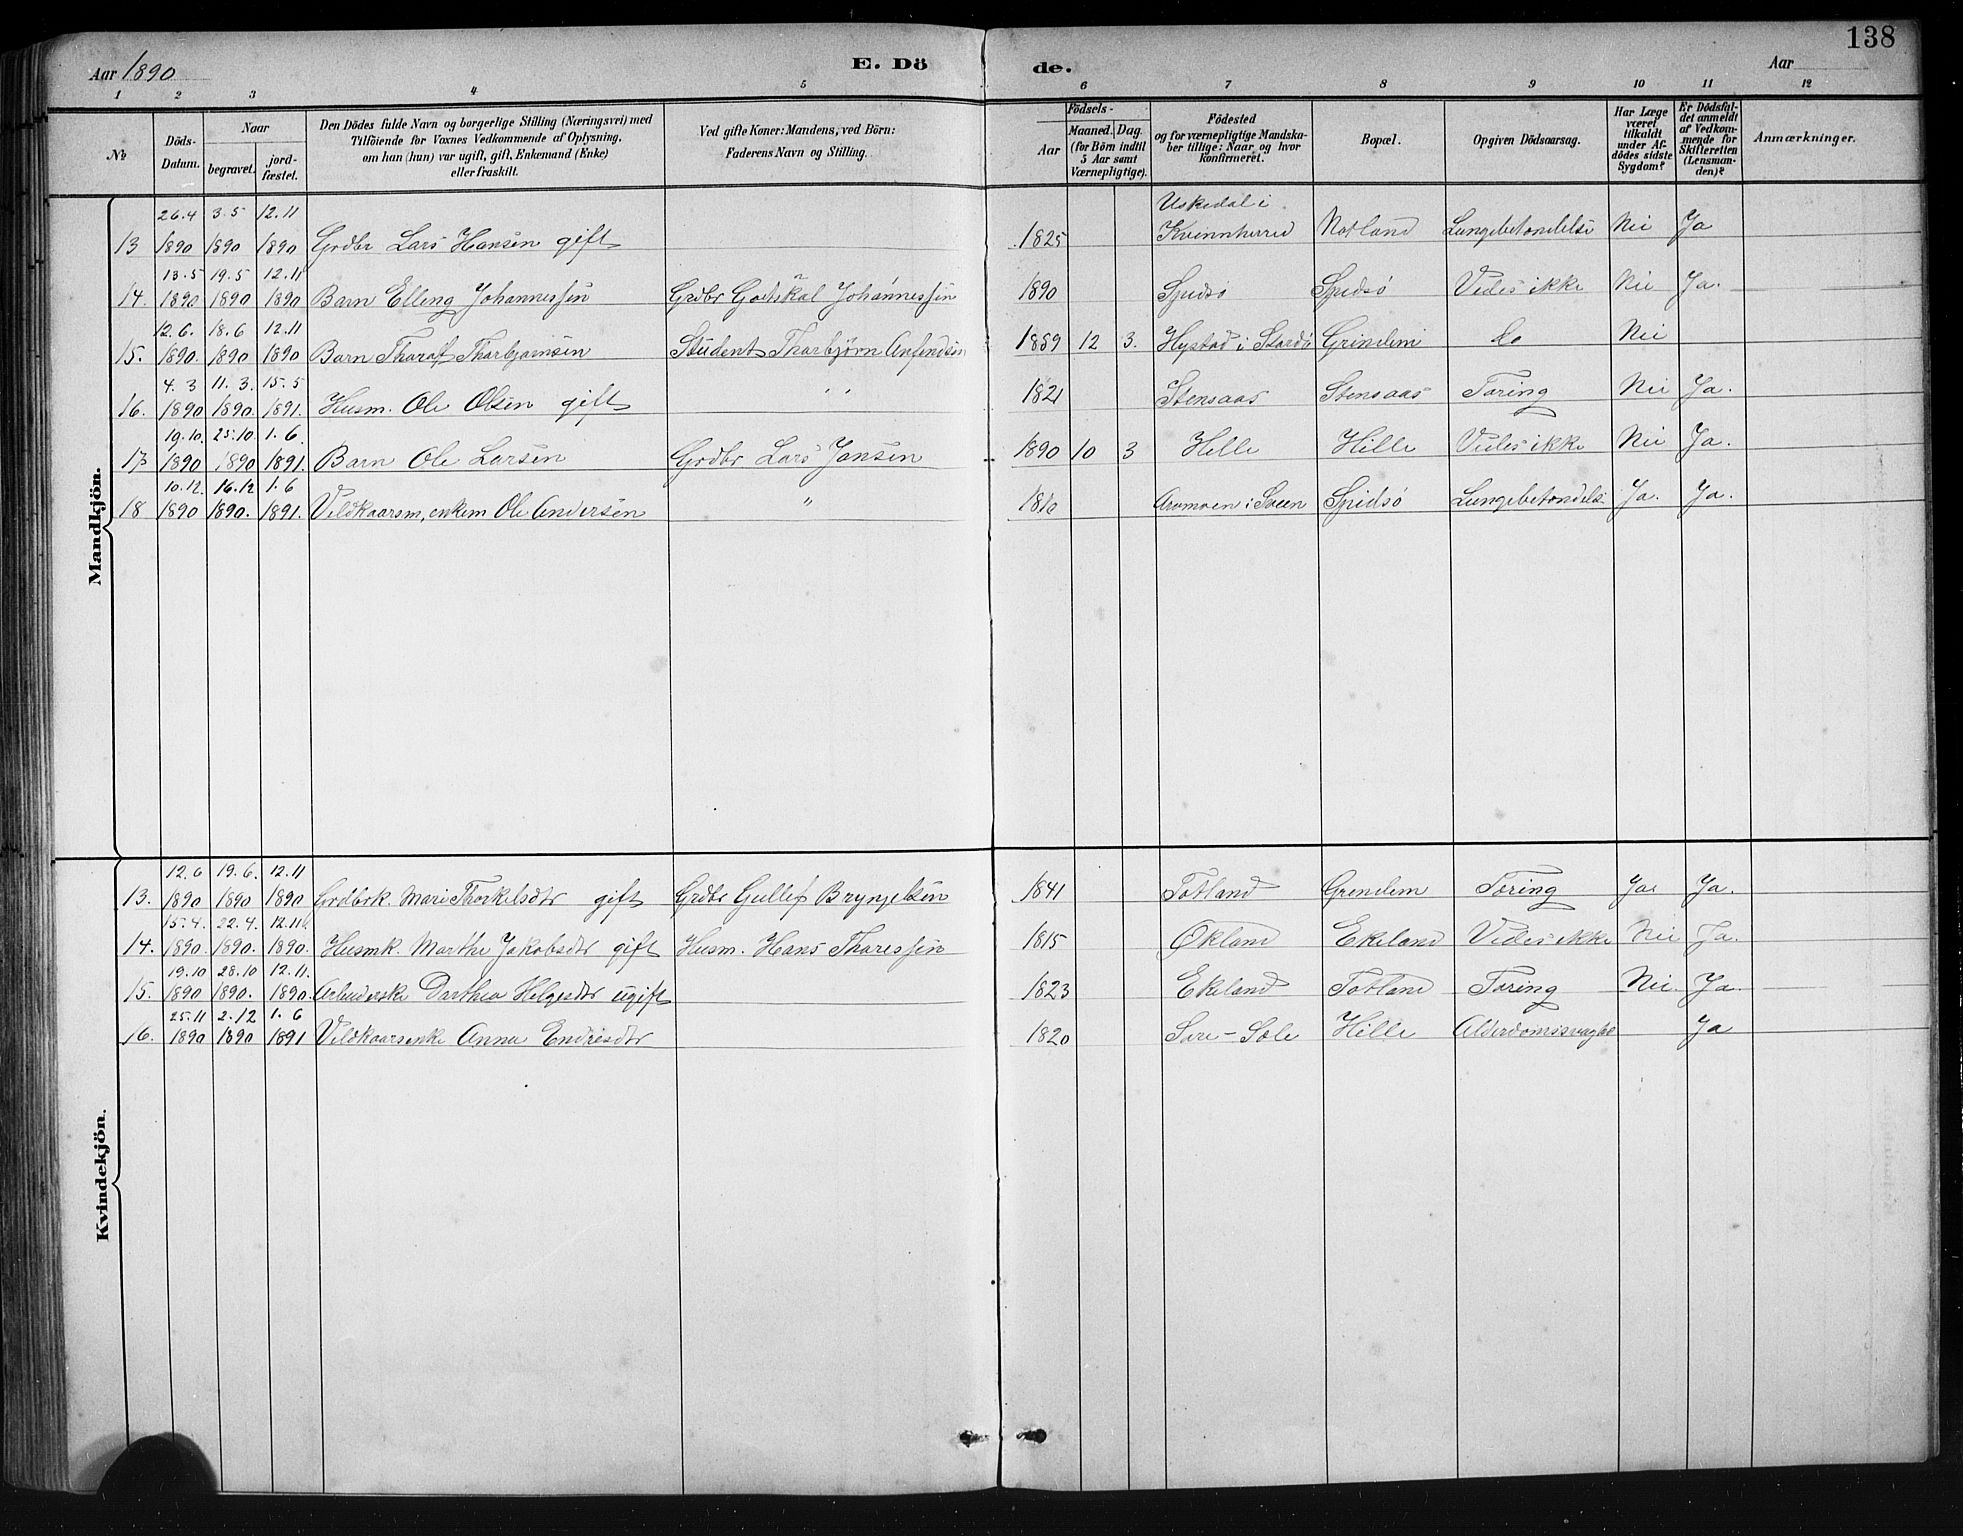 138
Aar 1890
E. Dö
de.
Aar
1 2 3 4 5 6 7 8 9 10 11 12
№
Döds-Datum.
Naar
begravet.
jord-fæstet.
Den Dödes fulde Navn og borgerlige Stilling (Næringsvei) med
Tilföiende for Voxnes Vedkommende af Oplysning,
om han (hun) var ugift, gift, Enkemand (Enke)
eller fraskilt.
Ved gifte Koner: Mandens, ved Börn:
Faderens Navn og Stilling.
Födsels-
Aar
Maaned. Dag.
(for Börn indtil
5 Aar samt
Værnepligtige).
Födested
og for værnepligtige Mandska-
ber tillige: Naar og hvor
Konfirmeret.
Bopæl.
Opgiven Dödsaarsag.
Har Læge
været
tilkaldt
under Af-
dödes sidste
Sygdom?
Er Dödsfal-
det anmeldt
af Vedkom-
mende for
Skifteretten
(Lensman-
den)?
Anmærkninger.
Mandkjön.
26.4 3.5 12.11 Uskedal i
13 1890 1890 1890 Grdbr Lars Hansen gift 1825 Kvinnherred Notland Lungebetendelse Nei Ja
13.5 19.5 12.11
14. 1890 1890 1890 Barn Elling Johannessen Grdbr Godtskal Johannessen 1890 Spidsö Spidsö Vides ikke Nei Ja.
12.6. 18.6 12.11
15. 1890. 1890 1890 Barn Tharalf Tharbjørnsen Student Tharbjørn Anfindsen 1889 12 3. Hystad i Stordö Grindem do Nei
4.3 11.3. 15.5
16. 1890 1890. 1891. Husm. Ole Olsen gift " 1821 Stensaas Stensaas Tæring Nei Ja.
19.10. 25.10. 1.6.
17 1890 1890 1891. Barn Ole Larsen Grdbr Lars Jansen 1890 10 3 Hille Hille Vides ikke Nei Ja.
10.12. 16.12 1.6
18 1890 1890. 1891. Vilkaarsm, enkem Ole Andersen " 1810 i Sveen Spidsö Lungebetendels. Ja. Ja.
Kvindekjön.
12.6 19.6. 12.11
13. 1890 1890 1890 Grdbrk. Mari Thorkelsdtr gift Grdbr Gullef Brynjelsen 1841 Totland Grendem Tæring Ja. Ja.
15.4. 22.4. 12.11
14. 1890. 1890. 1890. Husmk. Marthe Jakobsdtr gift Husm. Hans Tharessen 1815 Økland Ekeland Vides ikke Nei Ja.
19.10 28.10 12.11.
15. 1890 1890. 1890. Arbeiderske Darthea Helgesdtr ugift 1823 Ekeland Totland Tæring Nei. Ja.
25.11 2.12 1.6
16. 1890 1890 1891 Vilkaarsenke Anna Endresdtr 1820 Søre-Sole Hille Alderdomssvaghe Ja